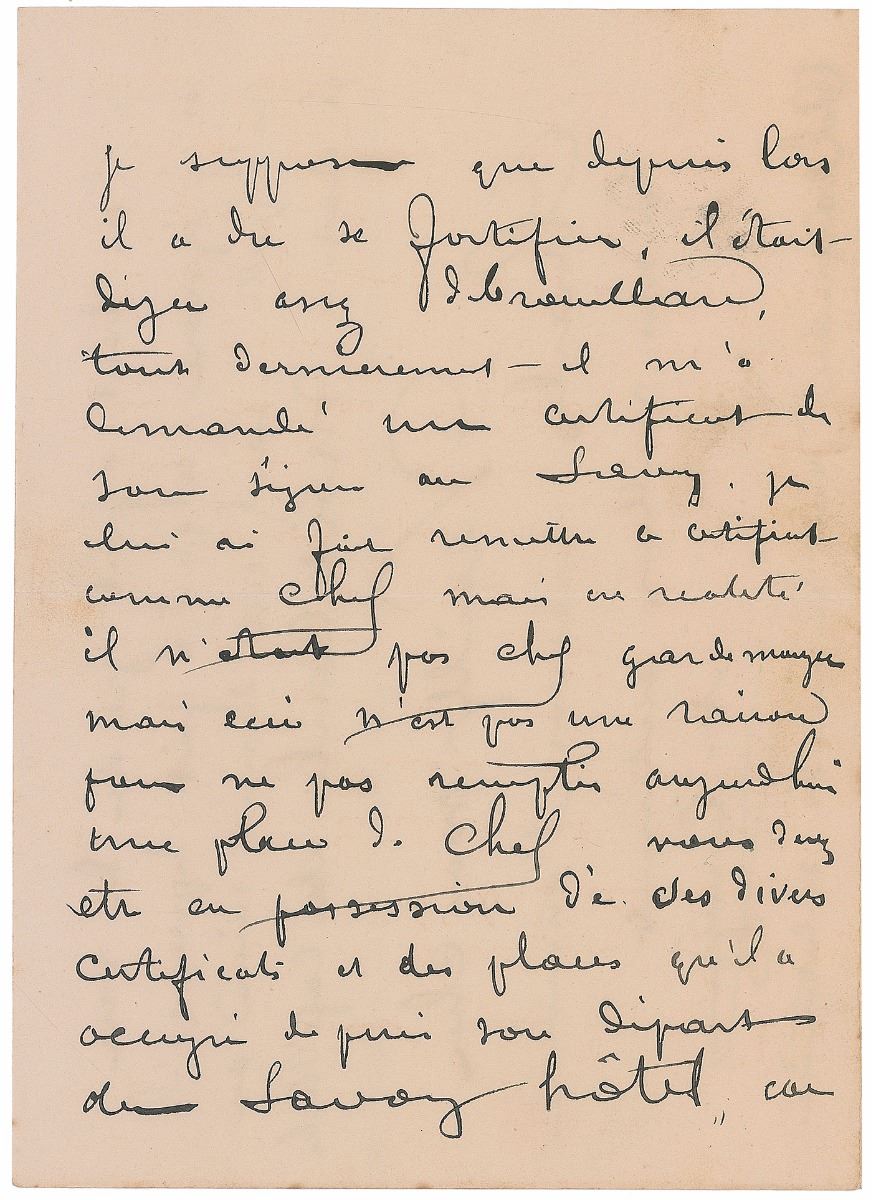 je suppose que depuis lors
il a du se fortifier, il était
déja assez débrouillard,
tout dernierement il m'a
demandé un certificat de
son séjour au Savoy. je
lui ai fait remettre ce certificat
comme Chef mais en realité
il n'était pas chef gardemanger
mais ceci n'est pas une raison
pour ne pas remplir aujourdhui
une place de Chef vous devez
etre en possession de ses divers
Certificats et des places qu'il a
occupé depuis son départ
du Savoy hôtel, car